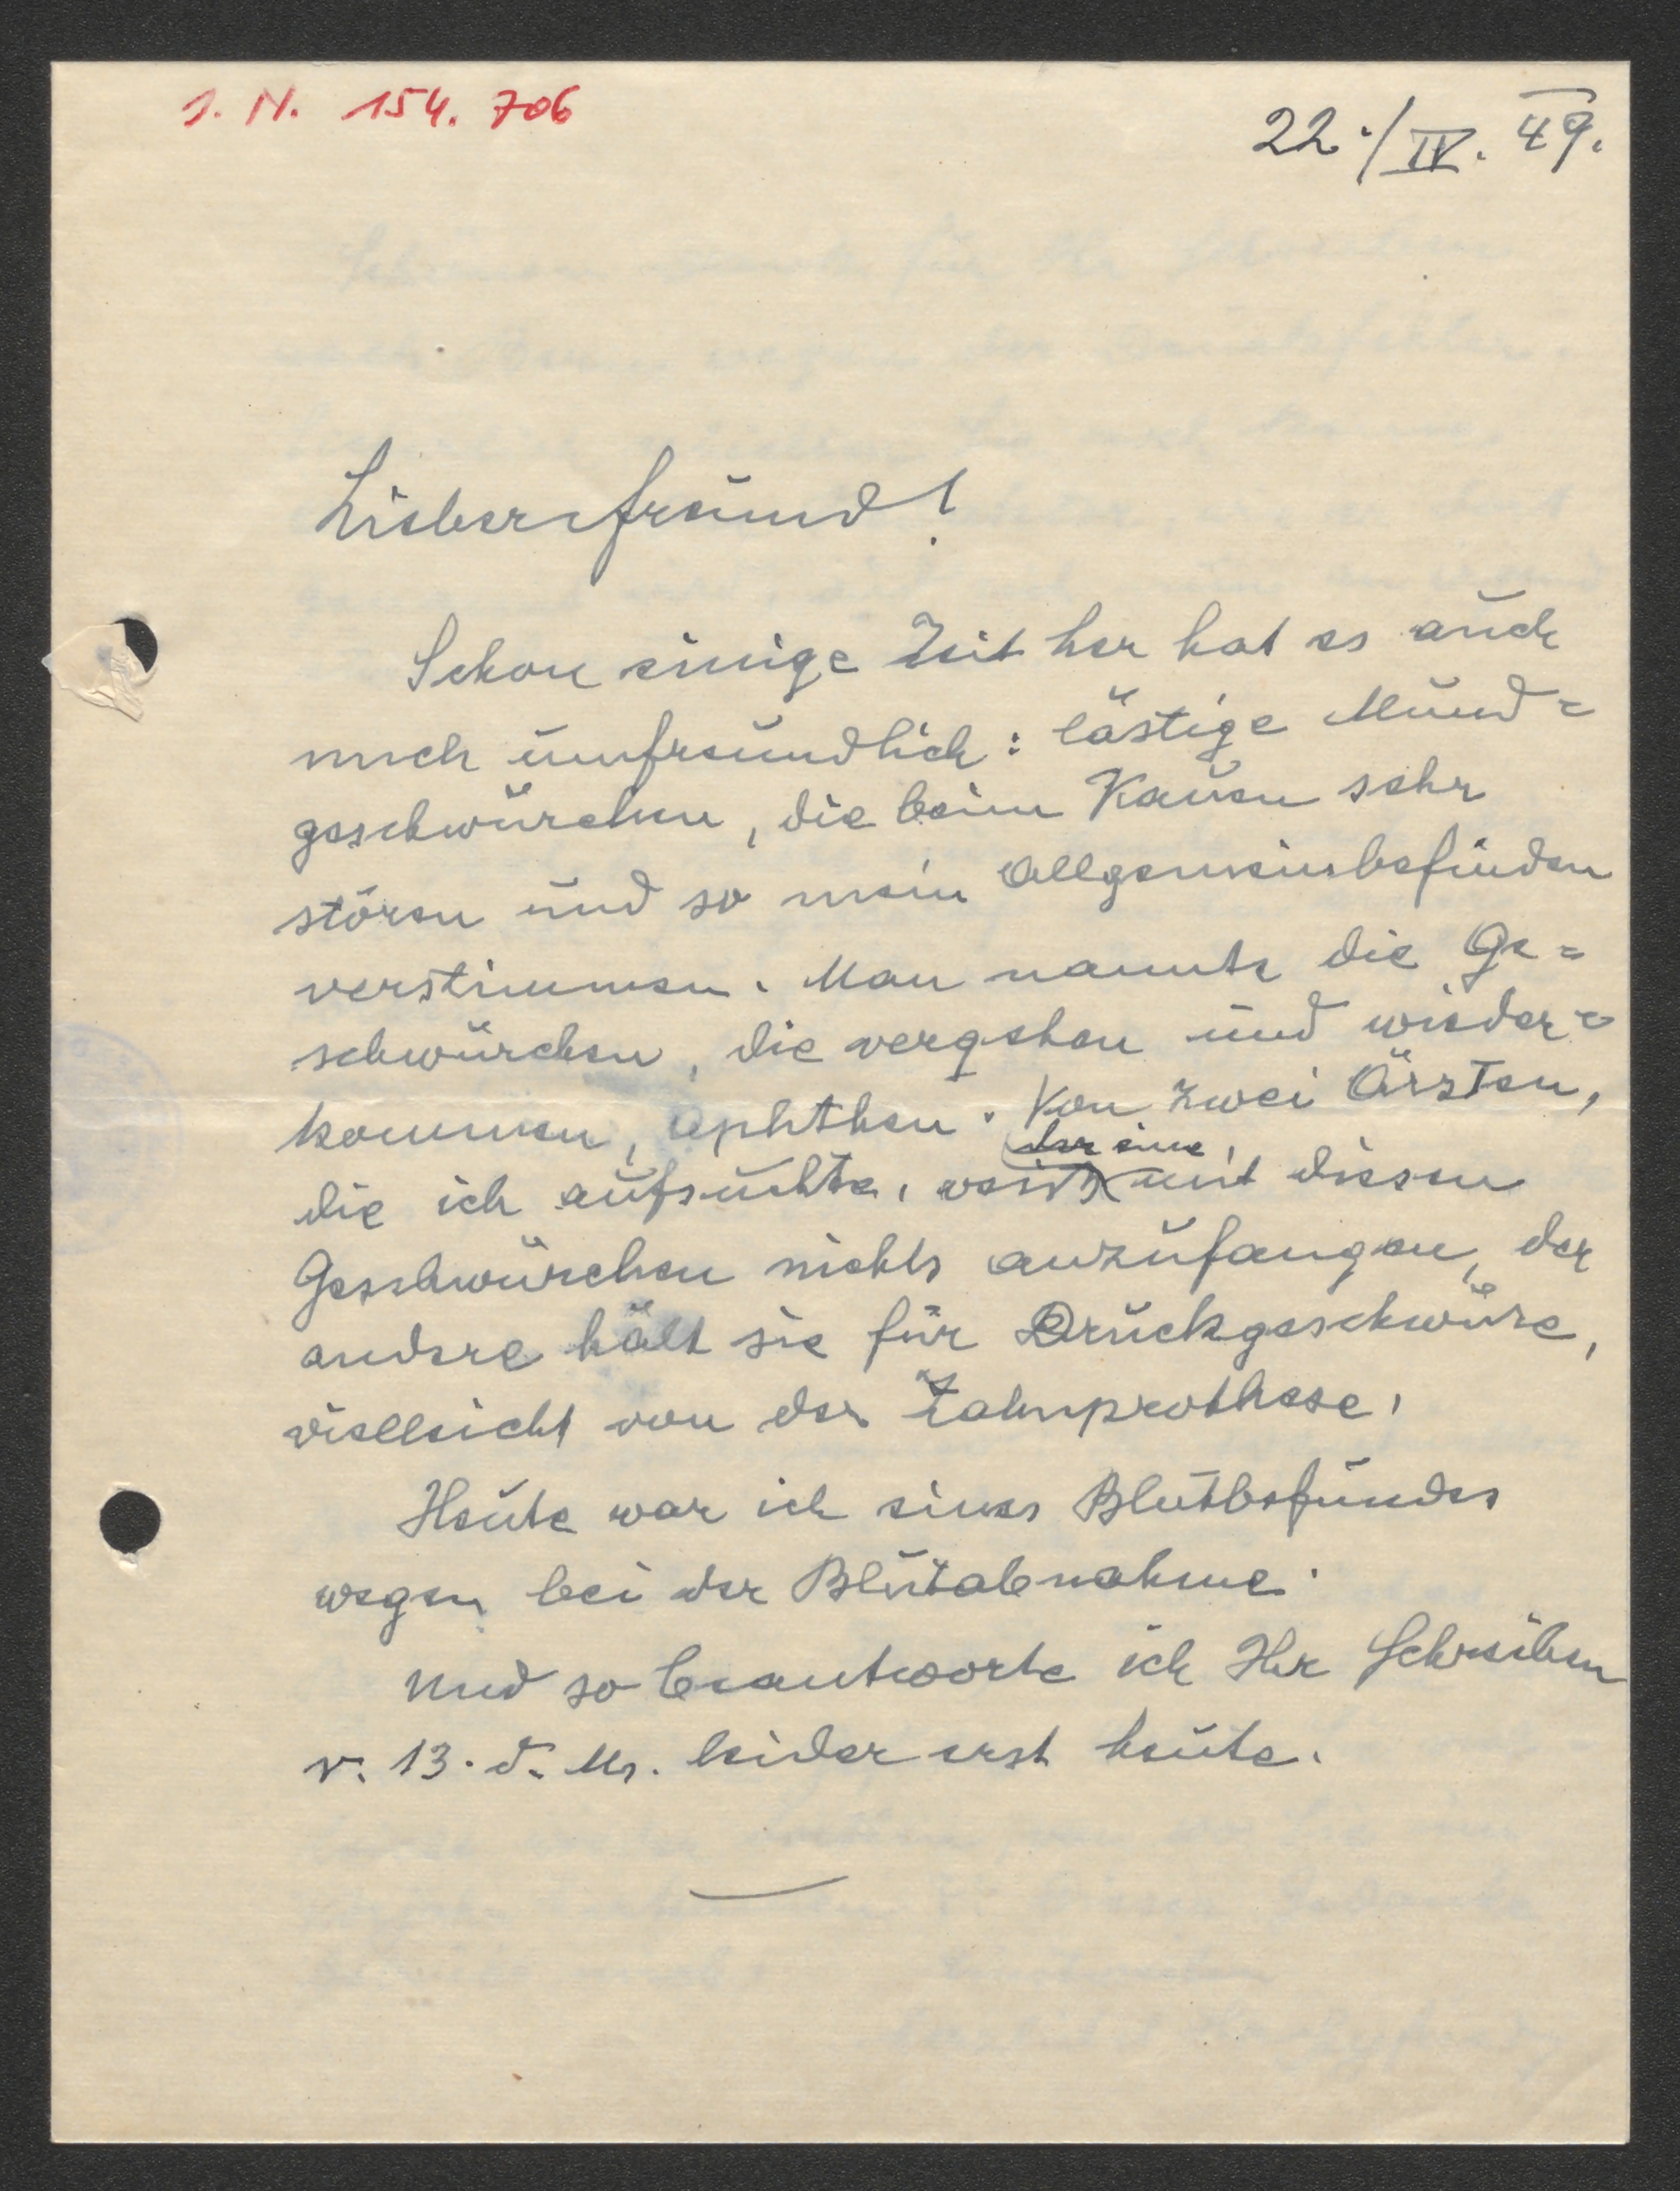 J. N. 154. 706
22./IV. 49.
Lieber Freund!
Schon einige Zeit her hat es auch
mich unfreundlich: lästige Mund=
geschwürchen, die beim Kauen sehr
stören und so mein Allgemeinbefinden
verstimmen. Man nannte die Ge=
schwürchen, die vergehen und wieder=
kommen, Aphthen. Von zwei Ärzten,
der eine,
die ich aufsuchte, weiß mit diesen
Geschwürchen nichts anzufangen, der
andere hält sie für Druckgeschwüre,
vielleicht von der Zahnprothese.
Heute war ich eines Blutbefundes
wegen bei der Blutabnahme.
Und so beantworte ich Ihr Schreiben
v. 13. d. Ms. leider erst heute.